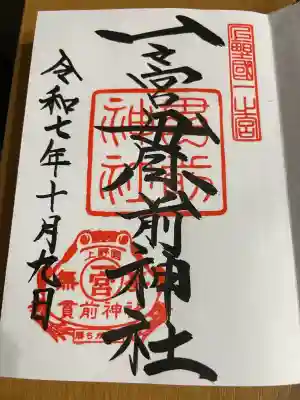 上野國一之宮
一之宮貫前神社
貫前
神社
令和七年十月九日
上野國
一宮
貫前神社